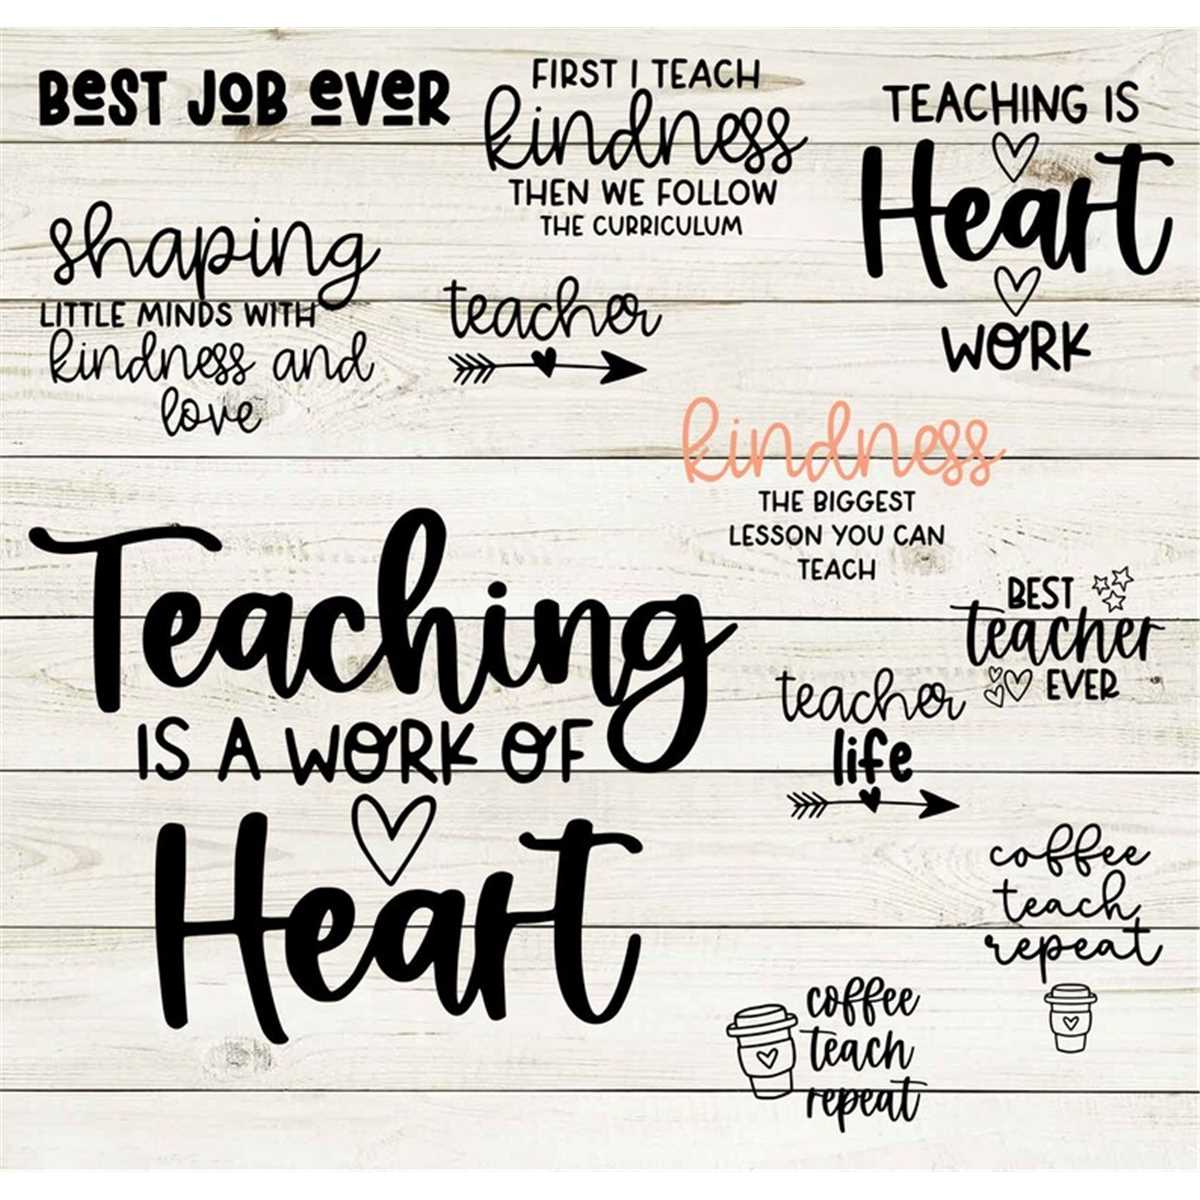 BEST JOB EVER
FIRST I TEACH
kindness
THEN WE FOLLOW
THE CURRICULUM
TEACHING IS
Heart
WORK
shaping
LITTLE MINDS WITH
kindness and
love
teacher
kindness
THE BIGGEST
LESSON YOU CAN
TEACH
Teaching
IS A WORK OF
Heart
BEST
teacher
EVER
teacher
life
coffee
teach
repeat
coffee
teach
repeat